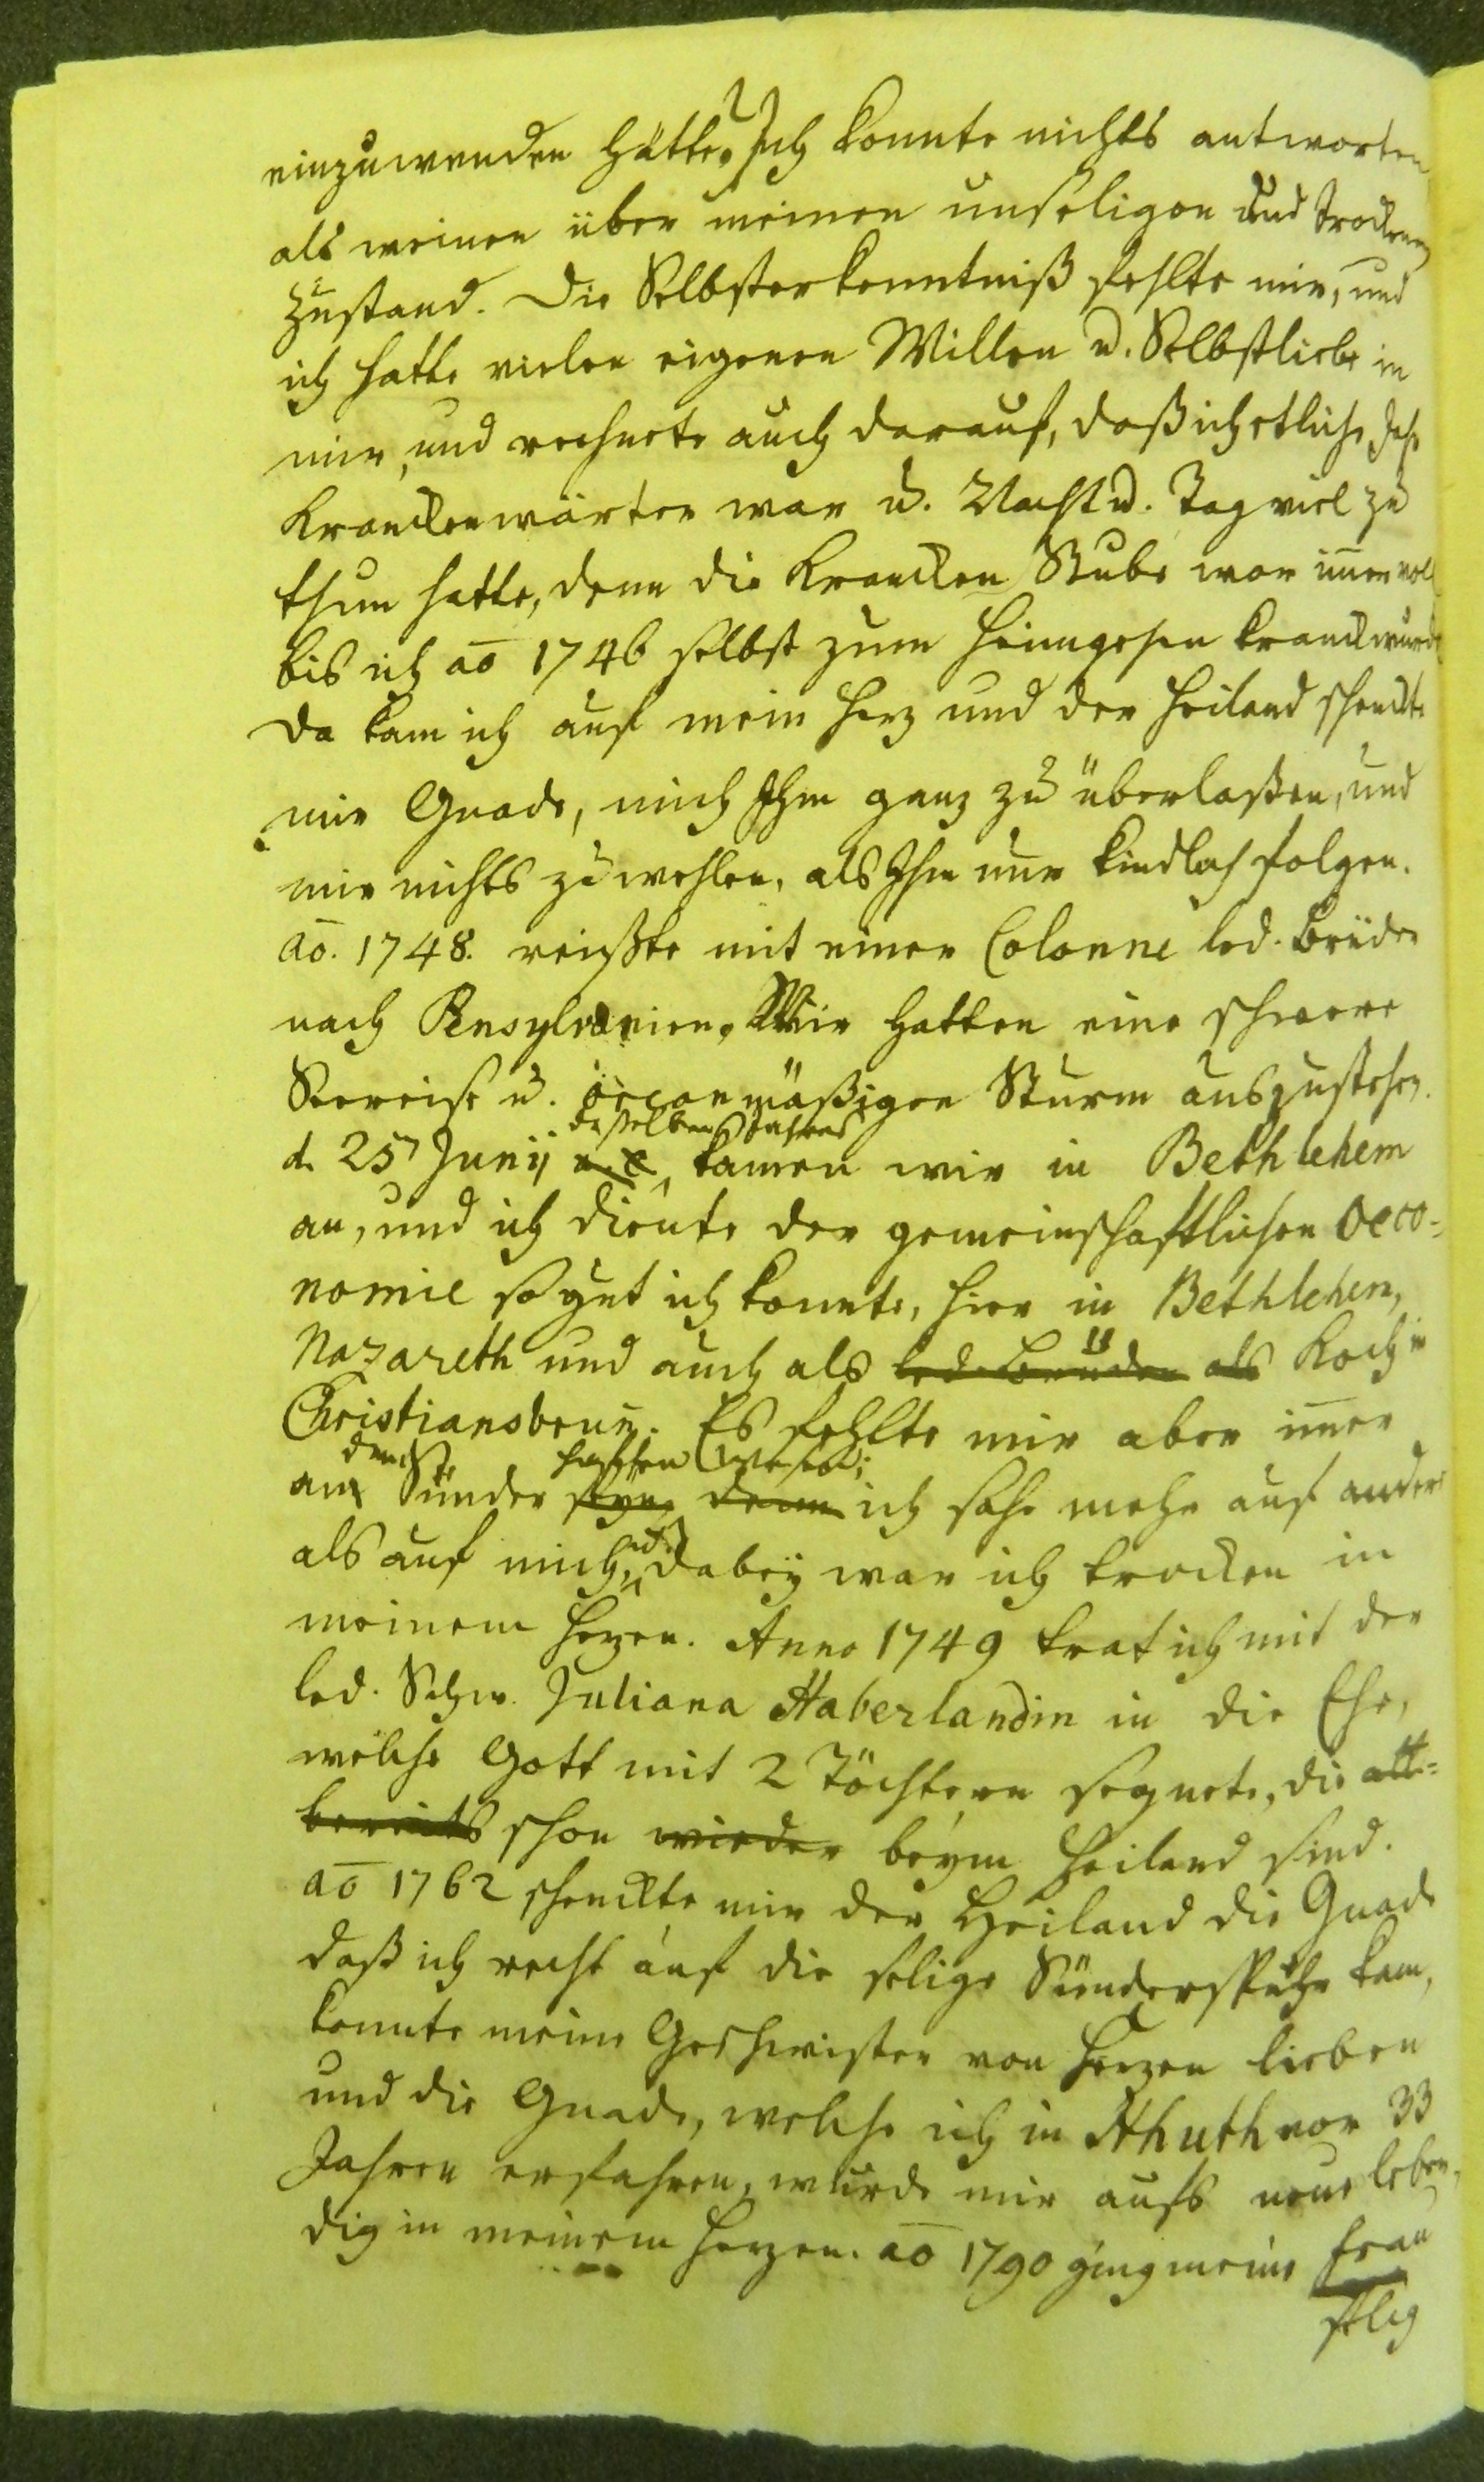 einzuwenden hätte? Ich konnte nichts antworten
als weinen über meinen unseligen und trockenen
Zustand. Die Selbsterkenntniß fehlte mir, und
ich hatte vielen eigenen Willen u. Selbstliebe in
mir, und rechnete auch darauf, daß ich etliche Jahr
Kranckenwärter war u. Nacht u. Tag viel zu
thun hatte, denn die Krancken Stube war im̄er voll
bis ich ao 1746 selbst zum Heimgehen kranck wurde
Da kam ich auf mein Herz und der Heiland schenckte
mir Gnade, mich Ihm ganz zu überlaßen, und
mir nichts zu wehlen, als Ihm nur kindlich folgen.
ao. 1748. reißte mit einer Colonne led. Brüder
nach Pensylvanien. Wir hatten eine schwere
Seereise u. orcanmäßigen Sturm auszustehen.
desselben Jahres
d. 25 Junij a. c. kamen wir in Bethlehem
an, und ich diente der gemeinschaftlichen Oeco-
nomie so gut ich konnte, hier in Bethlehem,
Nazareth und auch als led. Brüder als Koch in
Christiansbrun̄. Es fehlte mir aber im̄er
haften Wesen;
am Sünder seyn, denn ich sahe mehr auf andere
als auf mich, u. dabey war ich trocken in
meinem Herzen. Anno 1749 trat ich mit der
led. Schw. Juliana Haberlandin in die Ehe,
welche Gott mit 2 Töchtern segnete, die all-
bereits schon wieder beym Heiland sind.
ao 1762 schenckte mir der Heiland die Gnade
daß ich recht auf die selige Sünder kam,
konnte meine Geschwister von Herzen lieben
und die Gnade, welche ich in Hhuth vor 33
Jahren erfahren, wurde mir aufs neue leben-
dig in meinem Herzen. ao 1790 ging meine Frau
selig